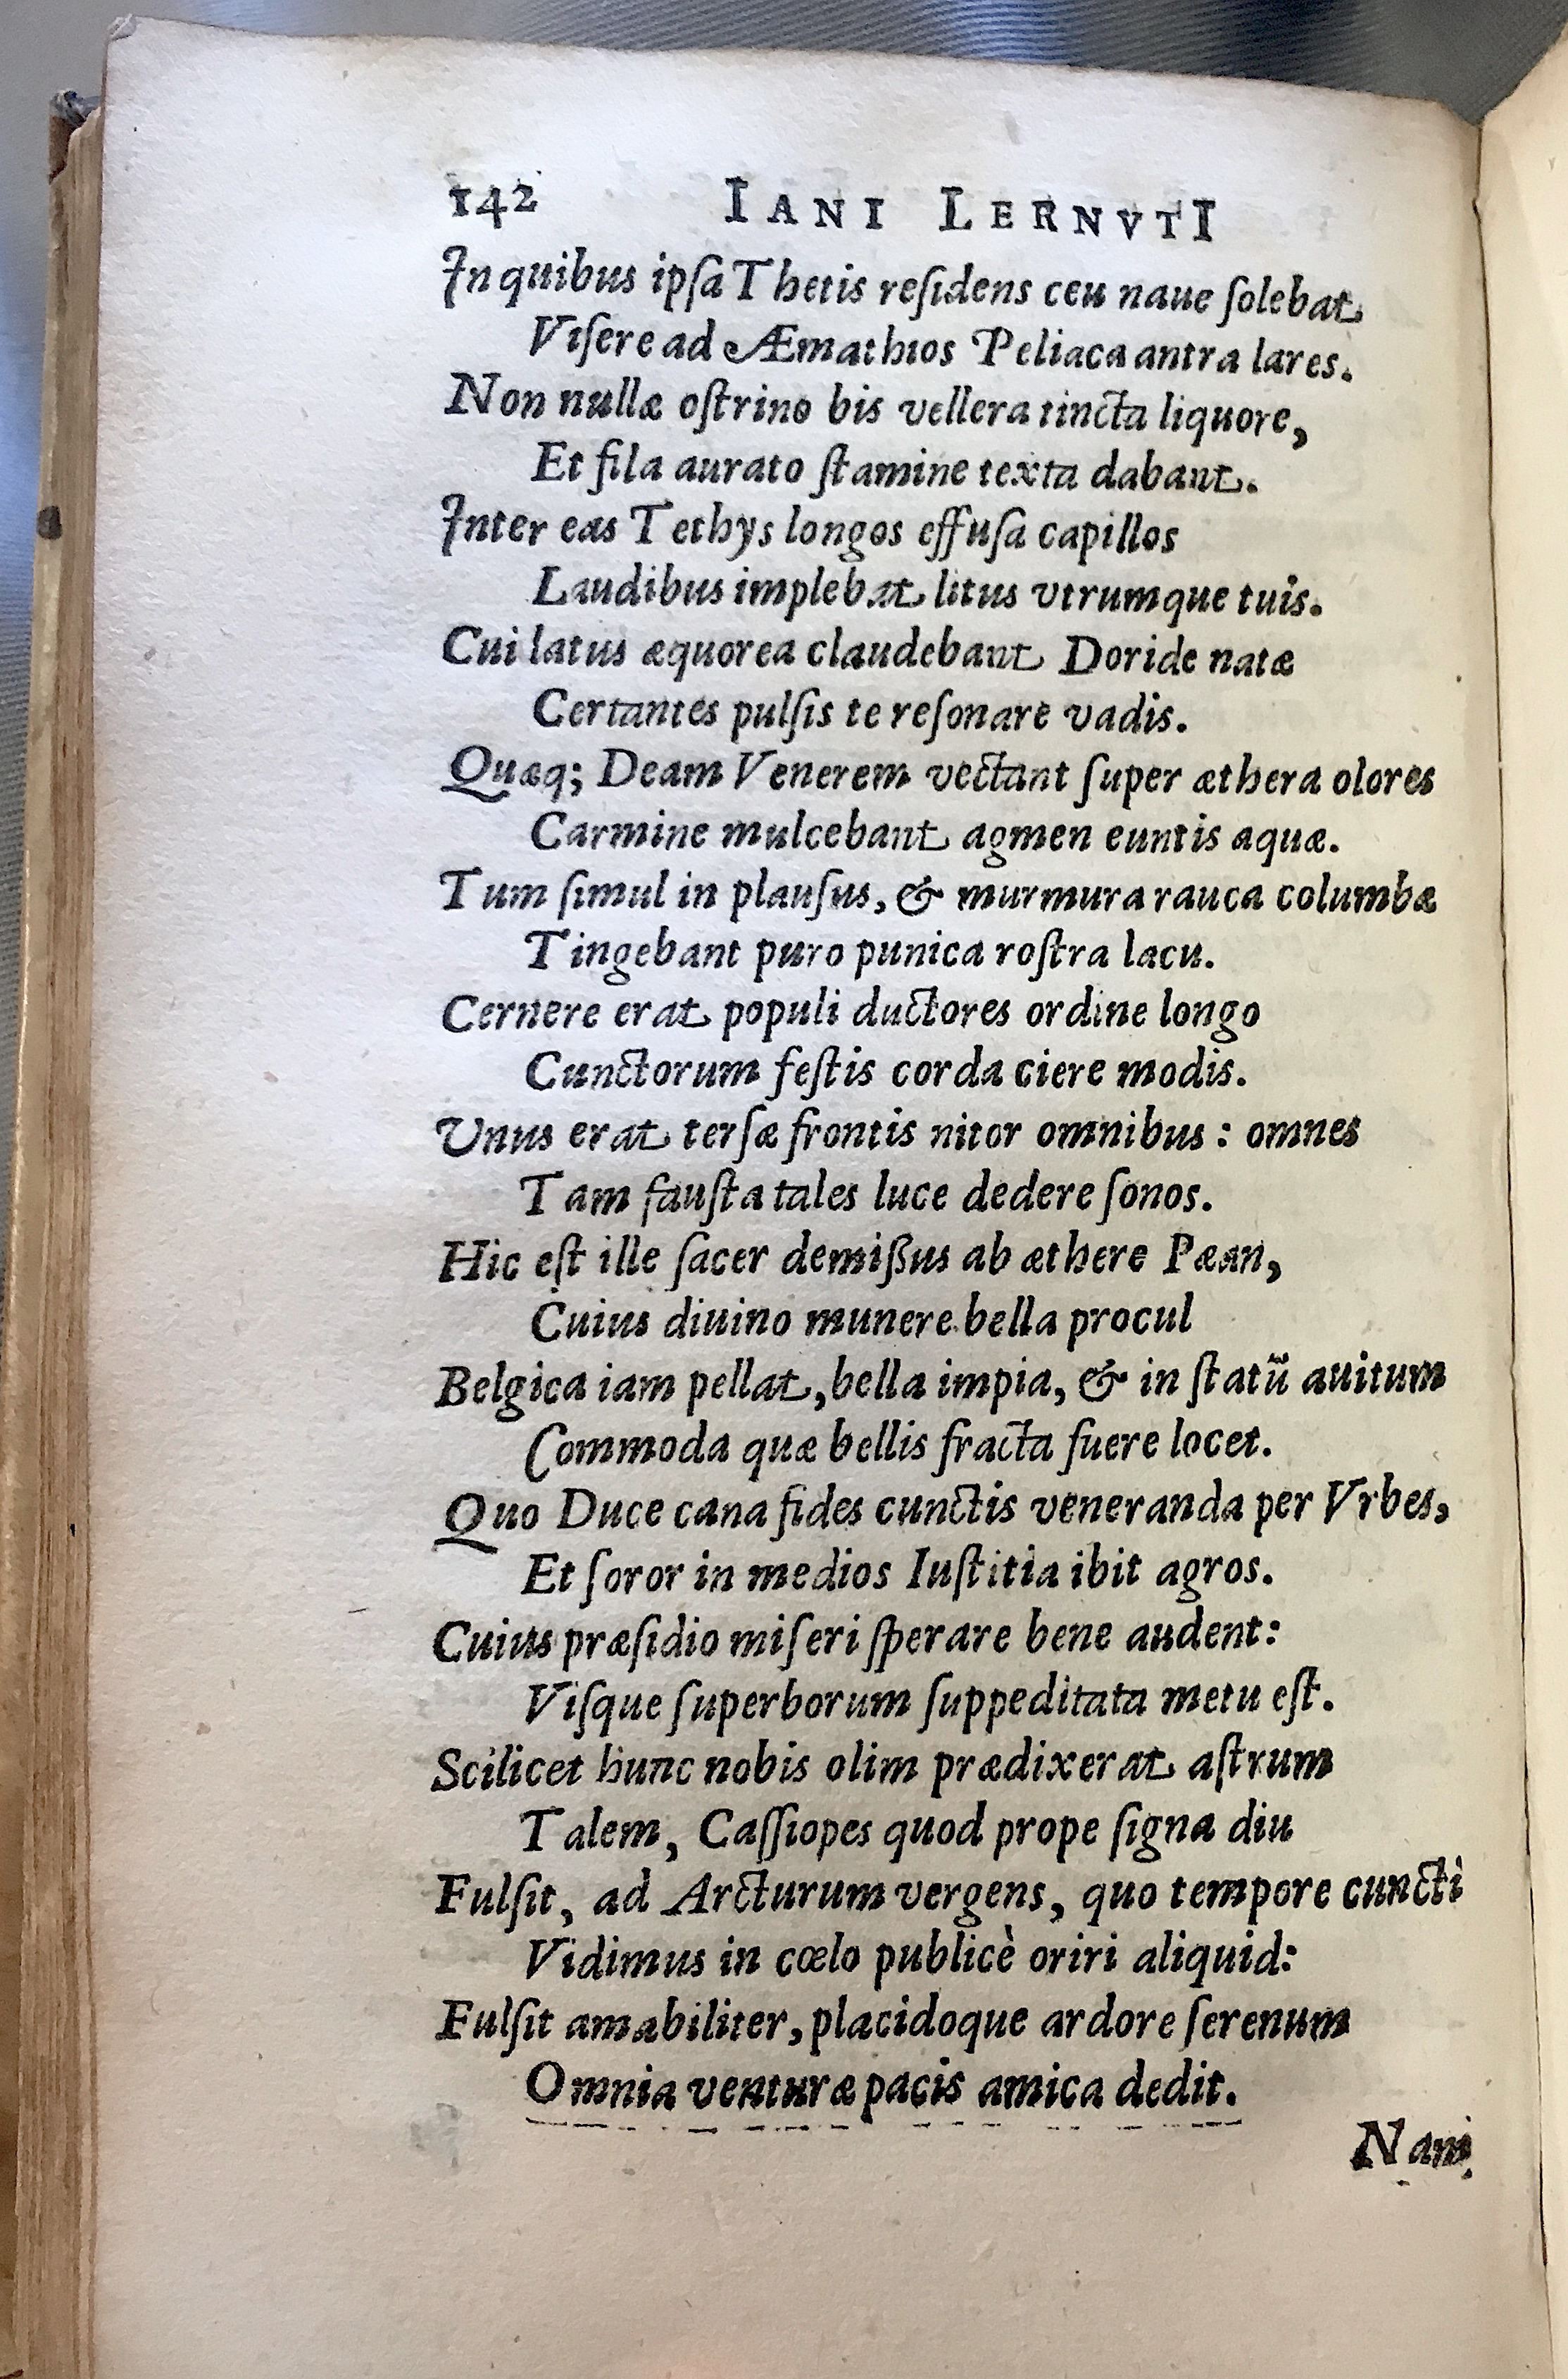 142 IANI LERNVTI
In quibus ipſa Thetis reſidens ceu naue ſolebat
Viſere ad Æmathios Peliaca antra lares.
Non nullæ oſtrino bis vellera tincta liquore,
Et fila aurato ſtamine texta dabant.
Inter eas Tethys longos effuſa capillos
Laudibus implebat litus vtrumque tuis.
Cui latus æquorea claudebant Doride natæ
Certantes pulſis te reſonare vadis.
Quæq; Deam Venerem vectant ſuper æthera olores
Carmine mulcebant agmen euntis aquæ.
Tum ſimul in plauſus, & murmura rauca columbæ
Tingebant puro punica roſtra lacu.
Cernere erat populi ductores ordine longo
Cunctorum feſtis corda ciere modis.
Unus erat terſæ frontis nitor omnibus: omnes
Tam fauſta tales luce dedere ſonos.
Hic eſt ille ſacer demißus ab æthere Pæan,
Cuius diuino munere bella procul
Belgica iam pellat, bella impia, & in ſtatū auitum
Commoda quæ bellis fracta fuere locet.
Quo Duce cana fides cunctis veneranda per Vrbes,
Et ſoror in medios Iuſtitia ibit agros.
Cuius præſidio miſeri ſperare bene audent:
Viſque ſuperborum ſuppeditata metu eſt.
Scilicet hunc nobis olim prædixerat aſtrum
Talem, Caſſiopes quod prope ſigna diu
Fulſit, ad Arcturum vergens, quo tempore cuncti
Vidimus in cœlo publicè oriri aliquid:
Fulſit amabiliter, placidoque ardore ſerenum
Omnia venturæ pacis amica dedit.
Nam